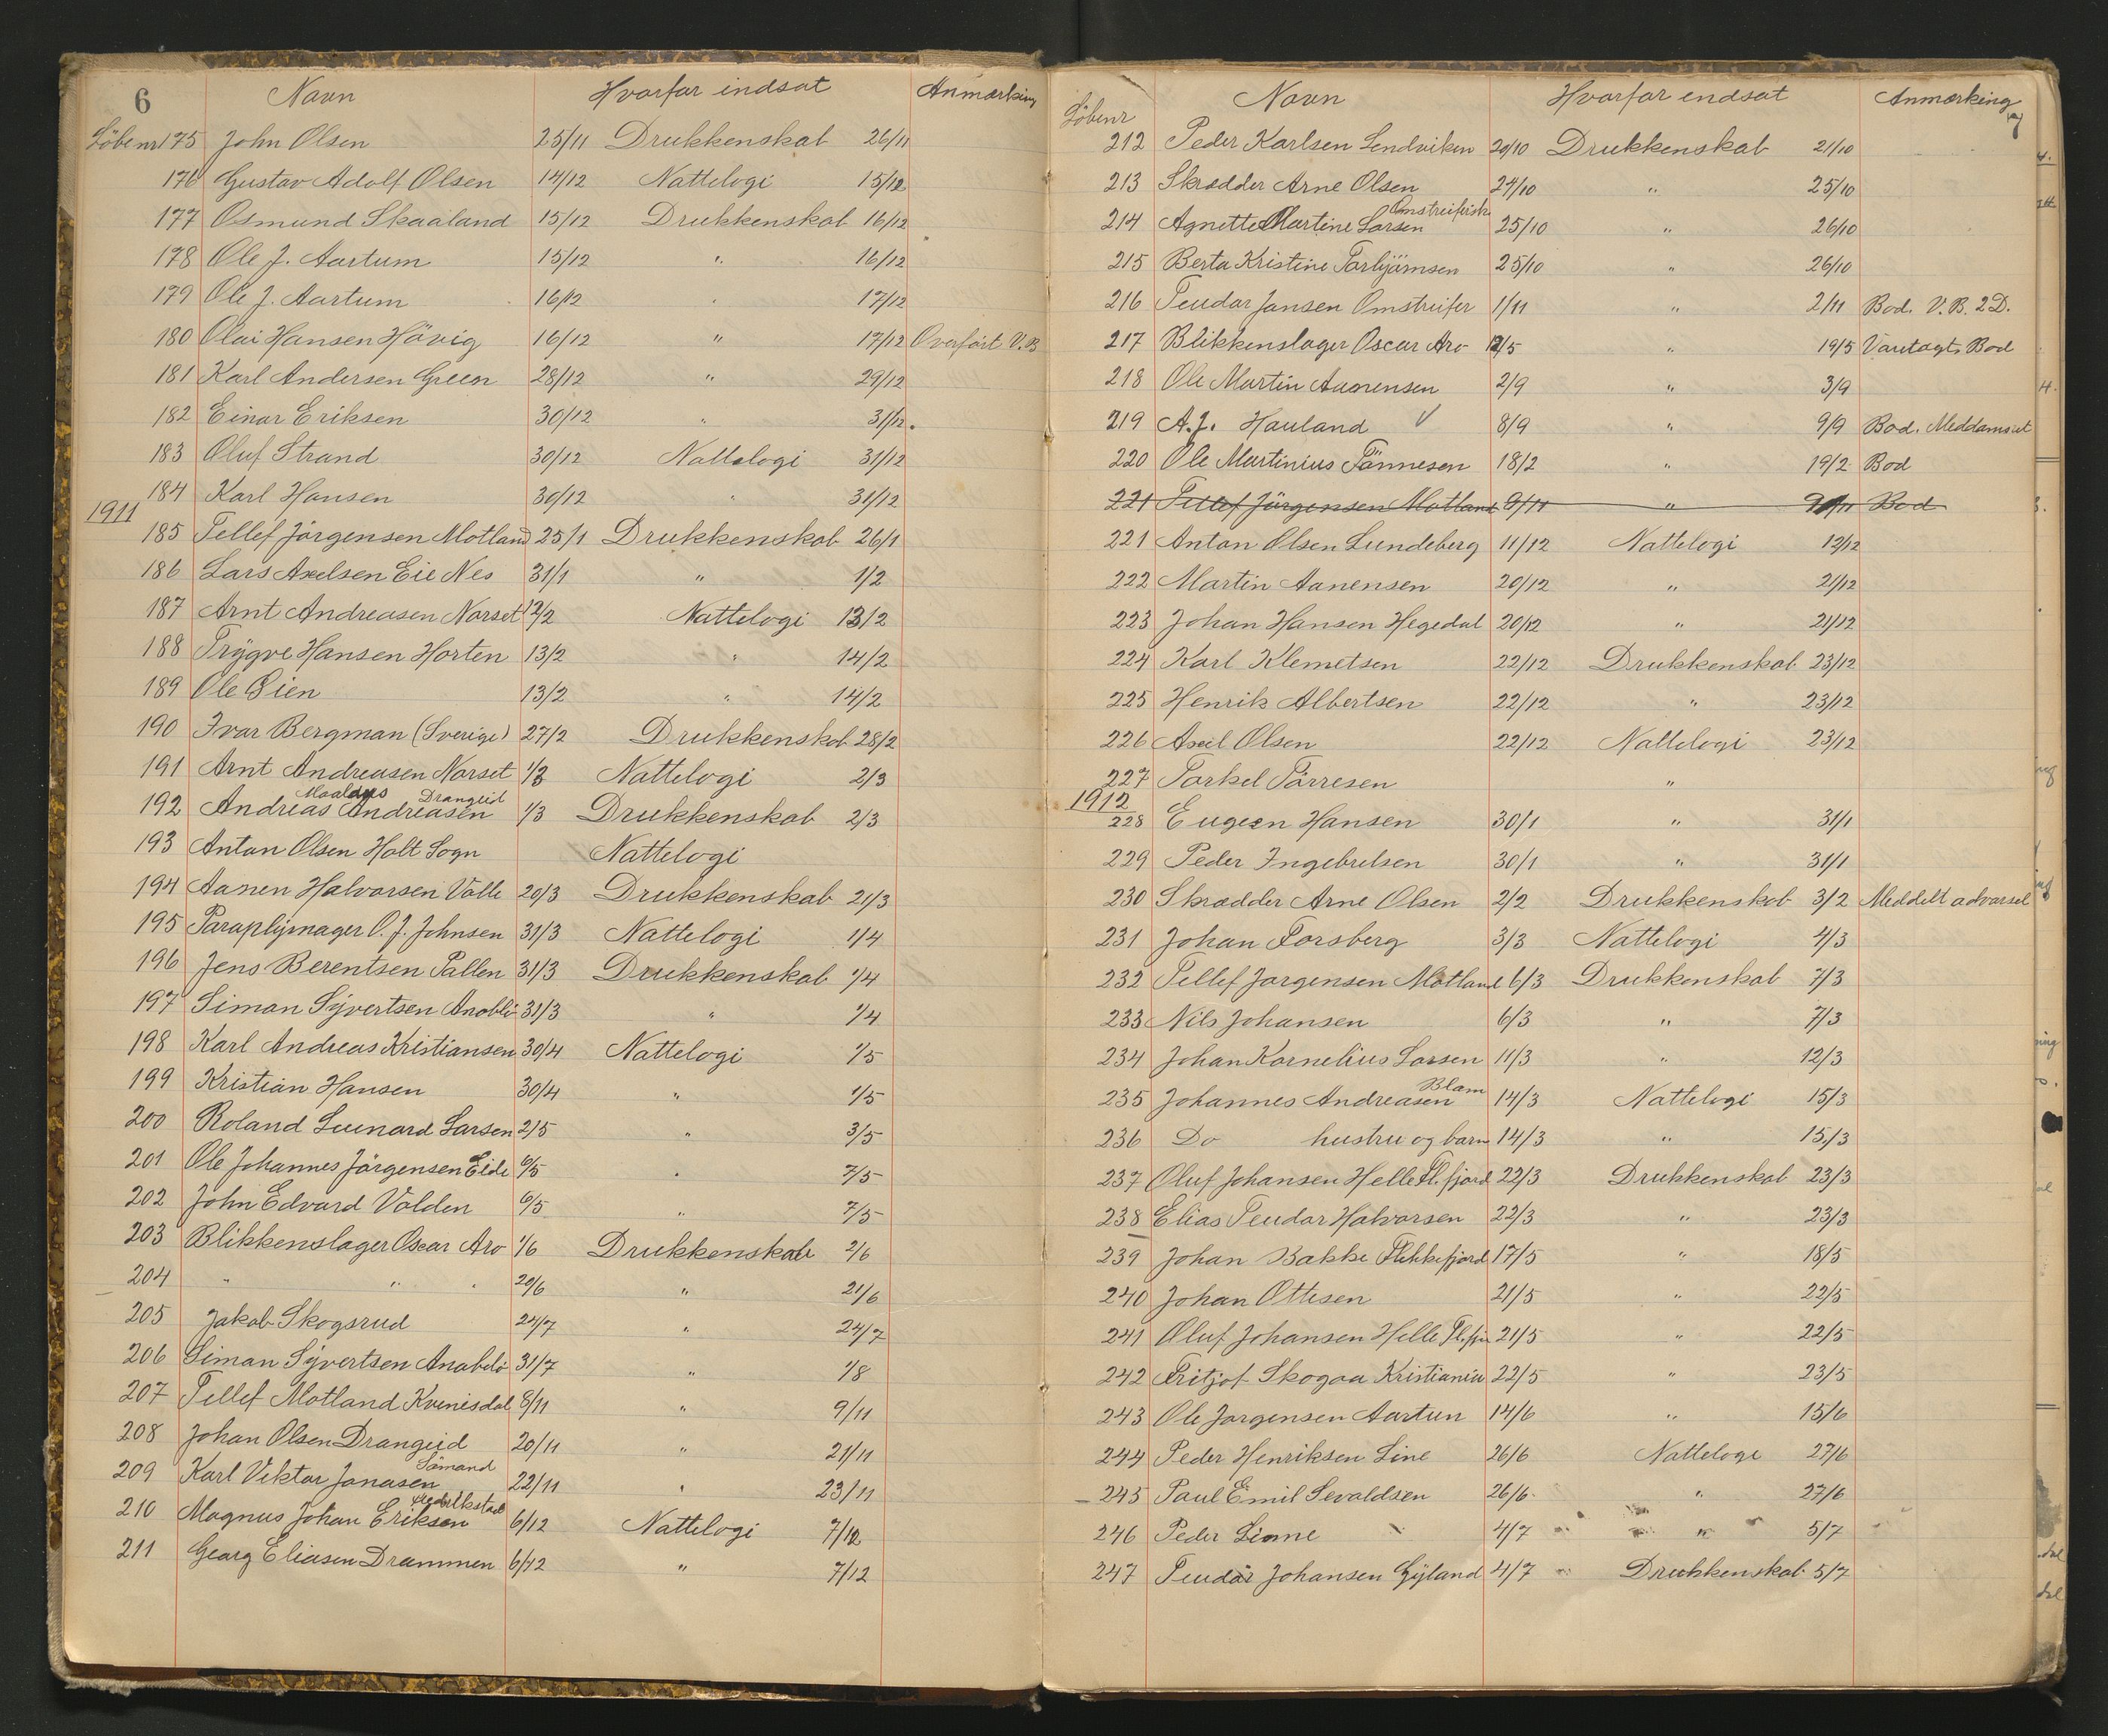 6
Navn Hvorfor indsat Anmærking
Löbenr 175 John Olsen 25/11 Drukkenskab 26/11
176 Gustav Adolf Olsen 14/12 Nattelogi 15/12
177 Osmund Skaaland 15/12 Drukkenskab 16/12
178 Ole J. Aartum 15/12 " 16/12
179 Ole J. Aartum 16/12 " 17/12
180 Olai Hansen Hövig 16/12 " 17/12 Overfört V.B
181 Karl Andersen Green 28/12 " 29/12
182 Einar Eriksen 30/12 " 31/12.
183 Oluf Strand 30/12 Nattelogi 31/12
184 Karl Hansen 30/12 " 31/12
1911
185 Tellef Jörgensen Motland 25/1 Drukkenskab 26/1
186 Lars Axelsen Eie Nes 31/1 " 1/2
187 Arnt Andreasen Norset 12/2 Nattelogi 13/2
188 Trygve Hansen Horten 13/2 " 14/2
189 Ole Bien 13/2 " 14/2
190 Ivar Bergman (Sverige) 27/2 Drukkenskab 28/2
191 Arnt Andreasen Norset 1/3 Nattelogi 2/3
192 Andreas Andreasen Drangeid 1/3 Drukkenskab 2/3
193 Anton Olsen Holt Sogn Nattelogi
194 Aanen Halvorsen Valle 20/3 Drukkenskab 21/3
195 Paraplymager O. J. Johnsen 31/3 Nattelogi 1/4
196 Jens Berentsen Pallen 31/3 Drukkenskab 1/4
197 Siman Syvertsen 31/3 " 1/4
198 Karl Andreas Kristiansen 30/4 Nattelogi 1/5
199 Kristian Hansen 30/4 " 1/5
200 Roland Leenard Larsen 2/5 " 3/5
201 Ole Johannes Jörgensen Eide 6/5 " 7/5
202 John Edvard Volden 6/5 " 7/5
203 Blikkenslager Oscar Aro 1/6 Drukkenskab 2/6
204 " " " 20/6 " 21/6
205 Jakob Skogsrud 24/7 " 24/7
206 Siman Syvertsen Anabelö 31/7 " 1/8
207 Tellef Motland Kvenisdal 8/11 " 9/11
208 Johan Olsen Drangeid 20/11 " 21/11
209 Karl Viktor Jonasen Sömand 22/11 " 23/11
210 Magnus Johan Eriksen Fredrikstad 6/12 Nattelogi 7/12
211 Georg Eliasen Drammen 6/12 " 7/12
Löbenr Navn Hvorfor indsat Anmærking
7
212 Peder Karlsen Lendviken 20/10 Drukkenskab 21/10
213 Skrædder Arne Olsen 24/10 " 25/10
214 Agnette Martine Larsen Omstreifersk 25/10 " 26/10
215 Berta Kristine Torbjörnsen 25/10 " 26/10
216 Teudor Jansen Omstreifer 1/11 " 2/11 Bod. V.B. 2 D.
217 Blikkenslager Oscar Aro 18/5 " 19/5 Vartagts Bod
218 Ole Martin Aanensen 2/9 " 3/9
219 A. J. Hauland V 8/9 " 9/9 Bod. Meddomsret
220 Ole Martinius Tönnesen 18/2 " 19/2 Bod
221 Tellef Jörgensen Motland 8/11 " 9/11 Bod
221 Anton Olsen Lundeberg 11/12 Nattelogi 12/12
222 Martin Aanensen 20/12 " 21/12
223 Johan Hansen Hegedal 20/12 " 21/12
224 Karl Klemetsen 22/12 Drukkenskab 23/12
225 Henrik Albertsen 22/12 " 23/12
226 Axel Olsen 22/12 Nattelogi 23/12
227 Torkel Törresen "
1912
228 Eugeen Hansen 30/1 " 31/1
229 Peder Ingebretsen 30/1 " 31/1
230 Skrædder Arne Olsen 2/2 Drukkenskab 3/2 Meddelt advarsel
231 Johan Forsberg 3/3 Nattelogi 4/3
232 Tellef Jorgensen Motland 6/3 Drukkenskab 7/3
233 Nils Johansen 6/3 " 7/3
234 Johan Kornelius Larsen 11/3 " 12/3
235 Johannes Andreasen Blom 14/3 Nattelogi 15/3
236 Do hustru og barn 14/3 " 15/3
237 Oluf Johansen Helle Fl. fjord 22/3 Drukkenskab 23/3
238 Elias Teudor Halvorsen 22/3 " 23/3
239 Johan Bakke Flekkefjord 17/5 " 18/5
240 Johan Ottesen 21/5 " 22/5
241 Oluf Johansen Helle Fl. fj 21/5 " 22/5
242 Fritjof Skogaa Kristiania 22/5 " 23/5
243 Ole Jorgensen Aartun 14/6 " 15/6
244 Peder Henriksen Line 26/6 Nattelogi 27/6
245 Paul Emil Sevaldsen 26/6 " 27/6
246 Peder Linne 4/7 " 5/7
247 Teudor Johansen Gyland 4/7 Drukkenskab 5/7